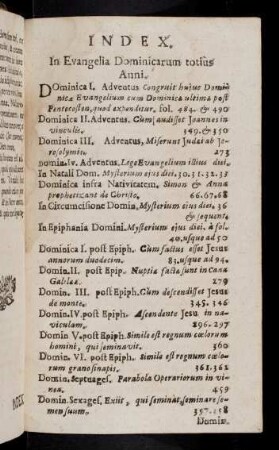 INDEX.
In Evangelia Dominicarum totius
Anni.
DOminica I. Adventus Congruit hujus Domi-
nica Evangelium cum Dominica ultima post
Pentecosten, quod expenditur, fol. 484. & 490
Dominica II. Adventus. Cum audisset Joannes in
vinculis. 349. & 350
Dominica III. Adventus, Miserunt Judæi ab Je-
rosolymis. 273
Domin. iv. Adventus, Lege Evangelium illius diei.
In Natali Dom. Mysterium ejus diei. 31. 32. 35
Dominica infra Nativitatem, Simon & Anna
prophetizant de Christo, 66. 67. 68
In Circumcisione Domin. Mysterium ejus diei, 36
& sequent.
In Epiphania Domini. Mysterium ejus diei. à fol.
40. usque ad 50
Dominica I. post Epiph. Cum factus esset Jesus
annorum duodecim. 83. usque ad 94
Domin. II. post Epip. Nuptiæ factæ sunt in Cana
Galilææ. 279
Domin. III. post Epiph. Cum descendisset Jesus
de monte. 345. 346
Domin. IV. post Epiph. Ascendente Jesu in na-
viculam. 296. 297
Domin V. post Epiph. Simile est regnum cœlorum
homini, qui seminavit. 360
Domin. VI. post Epiph. Simile est regnum cœ-
lorum grano sinapis. 361. 362
Domin. Septuages. Parabola Operariorum in vi-
nea. 459
Domin. Sexages. Exiit, qui seminat, seminare se-
men suum. 357. 358
Domin.